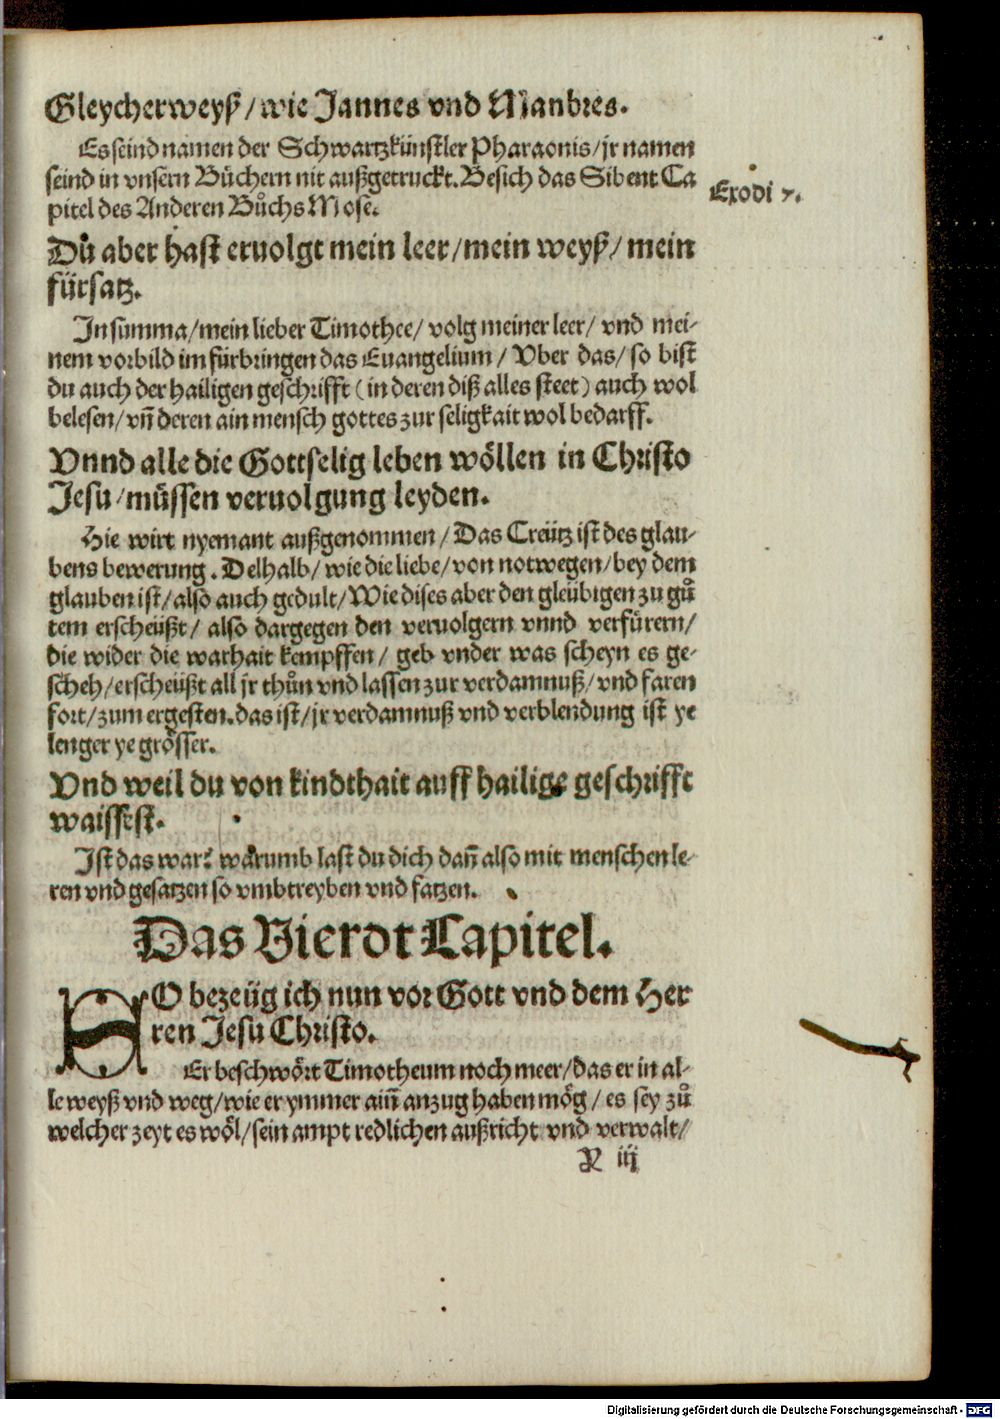 Gleycherweyß/wie Jannes vnd Manbres.
Es seind namen der Schwartzkünstler Pharaonis/jr namen
seind in vnsern Bůchern nit außgetruckt. Besich das Sibent Ca
pitel des Anderen Bůchs Mose.
Exodi 7.
Dů aber hast eruolgt mein leer/mein weyß/mein
fürsatz.
In summa/mein lieber Timothee/volg meiner leer/vnd mei-
nem vorbild im fürbringen das Euangelium/Vber das/so bist
du auch der hailigen geschrifft (in deren diß alles steet) auch wol
belesen/vñ deren ain mensch gottes zur seligkait wol bedarff.
Vnnd alle die Gottselig leben wöllen in Christo
Jesu/müssen veruolgung leyden.
Hie wirt nyemant außgenommen/Das Creütz ist des glau-
bens bewerung. Delhalb/wie die liebe/von notwegen/bey dem
glauben ist/also auch gedult/Wie dises aber den gleübigen zu gů
tem erscheüßt/also dargegen den veruolgern vnnd verfürern/
die wider die warhait kempffen/geb vnder was scheyn es ge-
scheh/erscheüßt all jr thůn vnd lassen zur verdamnuß/vnd faren
fort/zum ergesten. das ist/jr verdamnuß vnd verblendung ist ye
lenger ye grösser.
Vnd weil du von kindthait auff hailige geschrifft
waissest.
Ist das war? warumb last du dich dañ also mit menschen le-
ren vnd gesatzen so vmbtreyben vnd fatzen.
Das Vierdt Capitel.
SO bezeüg ich nun vor Gott vnd dem Her
ren Jesu Christo.
Er beschwört Timotheum noch meer/das er in al-
le weyß vnd weg/wie er ymmer aiñ anzug haben mög/es sey zů
welcher zeyt es wöl/sein ampt redlichen außricht vnd verwalt/
R iij
Digitalisierung gefördert durch die Deutsche Forschungsgemeinschaft - DFG